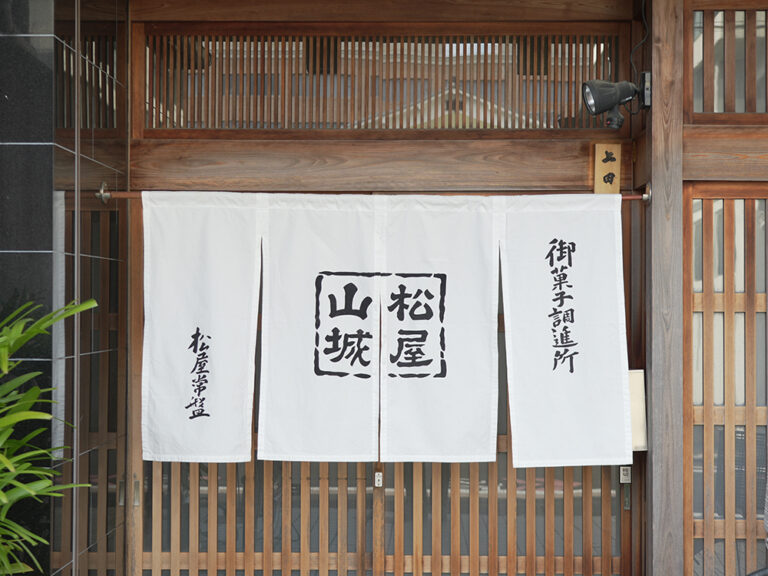 上田
御菓子調進所
松屋
山城
松屋常盤